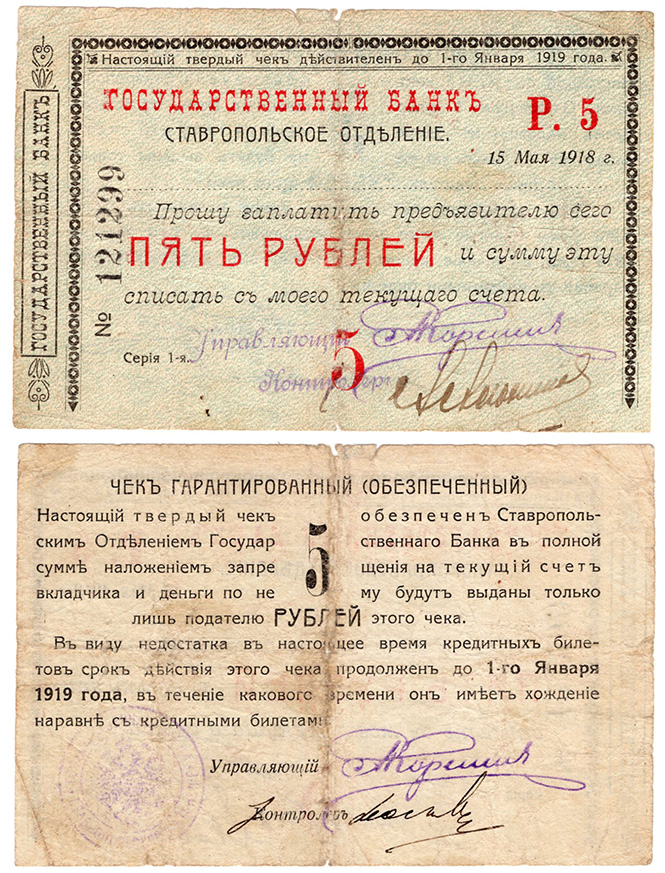 Настоящій твердый чекъ дѣйствителенъ до 1-го Января 1919 года.
ГОСУДАРСТВЕННЫЙ БАНКЪ
ГОСУДАРСТВЕННЫЙ БАНКЪ
Р. 5
СТАВРОПОЛЬСКОЕ ОТДѢЛЕНІЕ.
15 Мая 1918 г.
№ 121299
Прошу заплатить предъявителю сего
ПЯТЬ РУБЛЕЙ и сумму эту
списать съ моего текущаго счета.
Управляющій
Серія 1-я.
5
Контролеръ
ЧЕКЪ ГАРАНТИРОВАННЫЙ (ОБЕЗПЕЧЕННЫЙ)
Настоящій твердый чекъ обезпеченъ Ставрополь-
скимъ Отдѣленіемъ Государ 5 ственнаго Банка въ полной
суммѣ наложеніемъ запре щенія на текущій счетъ
вкладчика и деньги по не му будутъ выданы только
лишь подателю РУБЛЕЙ этого чека.
Въ виду недостатка въ настоящее время кредитныхъ биле-
товъ срокъ дѣйствія этого чека продолженъ до 1-го Января
1919 года, въ теченіе какового времени онъ имѣетъ хожденіе
наравнѣ съ кредитными билетами
Управляющій
Контролеръ